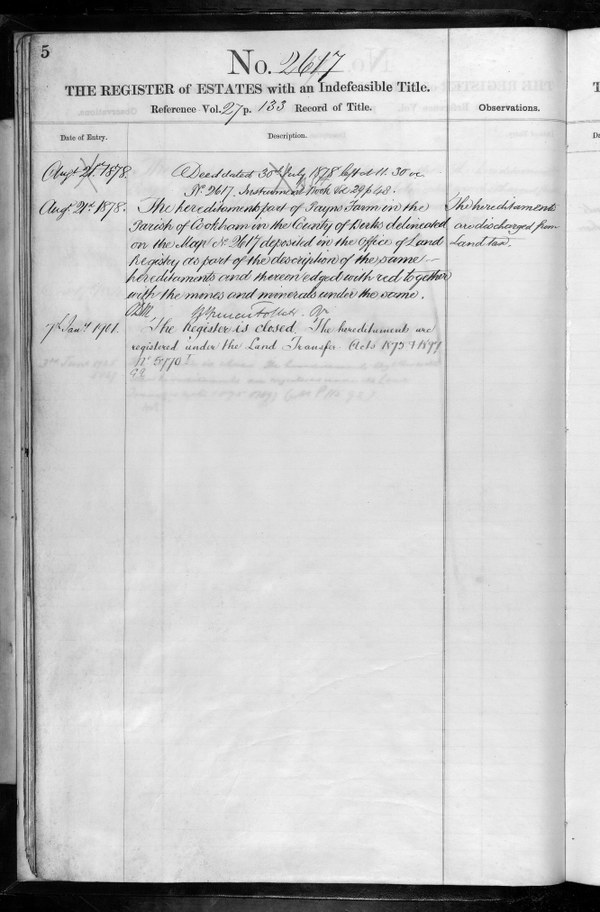 5
No. 2617
THE REGISTER of ESTATES with an Indefeasible Title.
Reference Vol. 27 p. 133 Record of Title.
Observations.
Date of Entry.
Description.
Augt 21st 1878.
Deed dated 30th July 1878 left at 11.30
No 2617. Instrument Book Vol 29 p 48.
Augt 21st 1878.
The hereditament part of Payns Farm in the
Parish of Cookham in the County of Berks delineated
on the Map No 2617 deposited in the Office of Land
Registry as part of the description of the same
hereditaments and thereon edged with red together
with the mines and minerals under the same.
The hereditaments
are discharged from
Land tax.
7th Jany 1901.
The Register is closed. The hereditaments are
registered under the Land Transfer Acts 1875 & 1897
No 5770